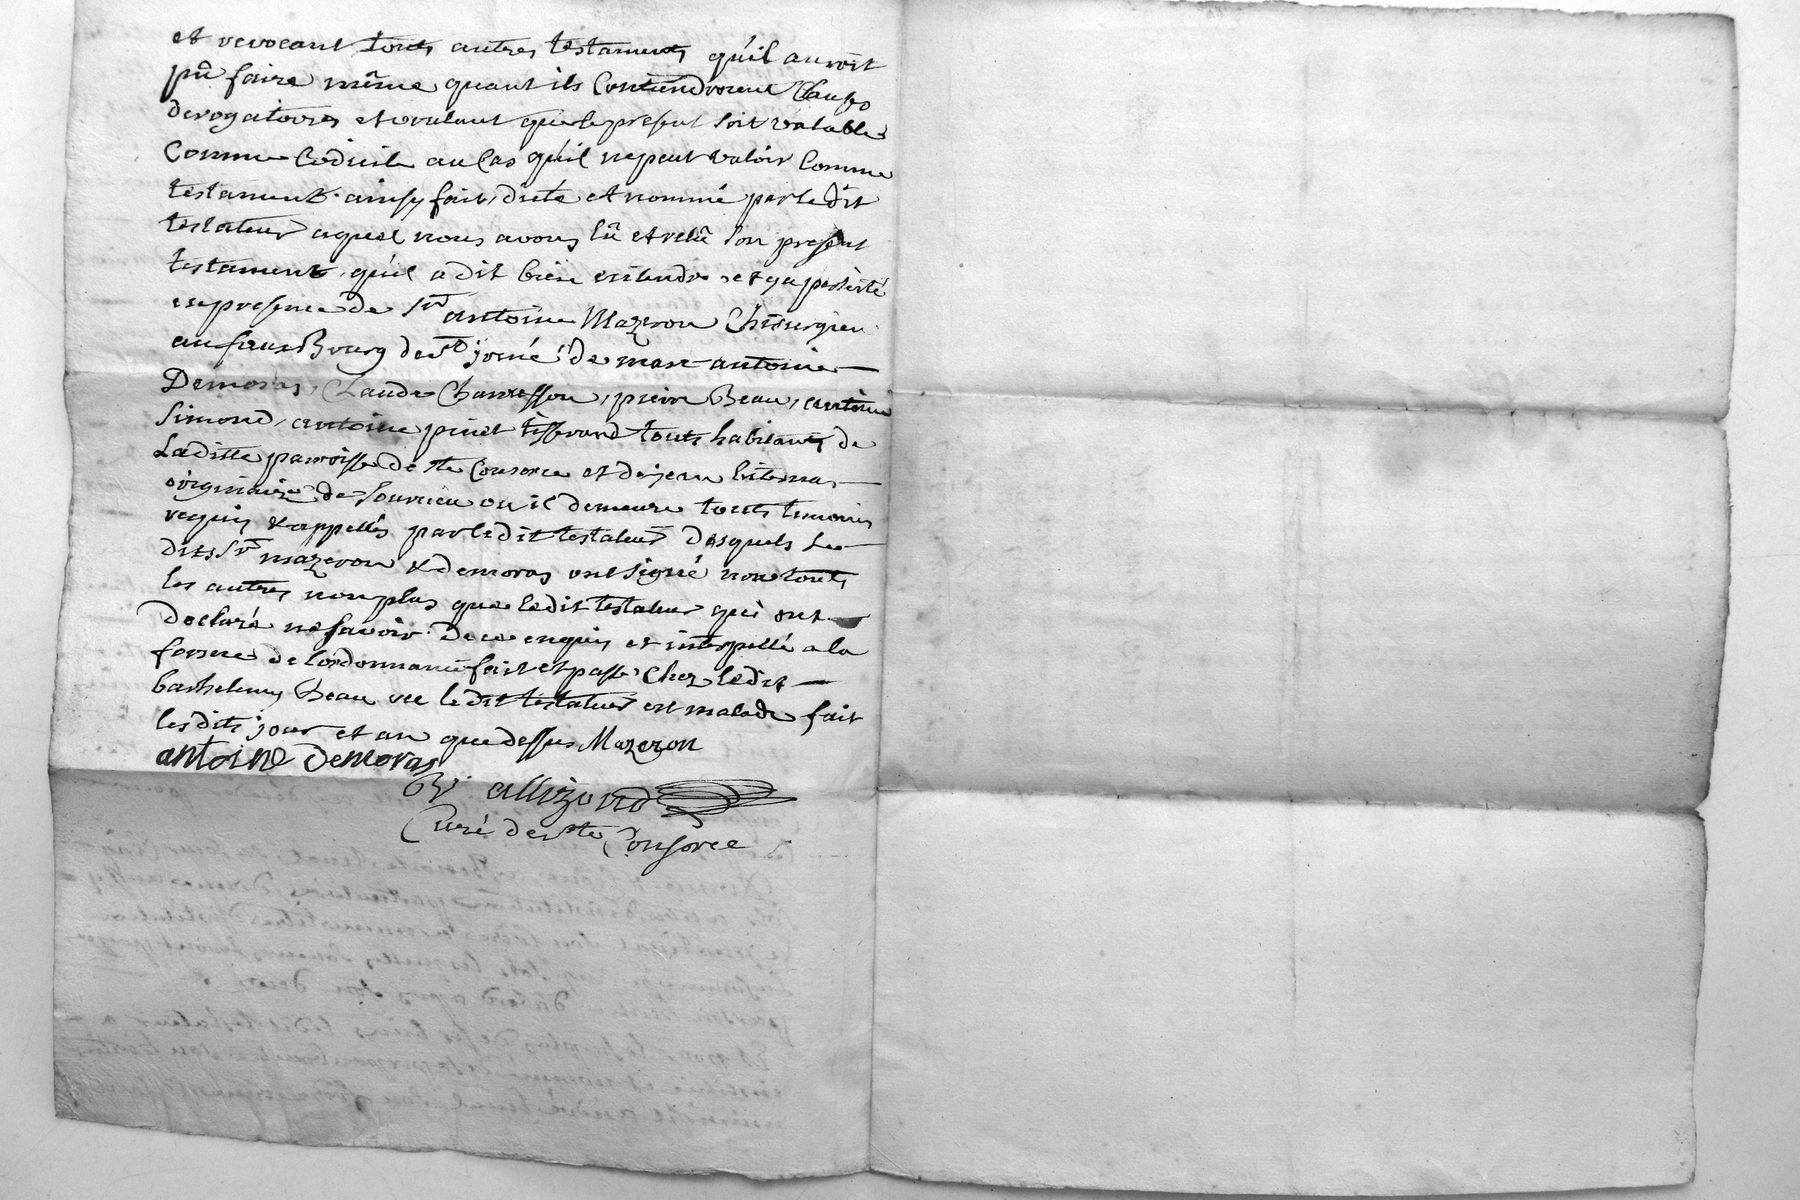 et revocant touts autres testaments qu'il auroit
pû faire même quant ils Contiendroient Clauses
derogatoires et voulant que le present soit valable
Comme Codicile au Cas qu'il ne peut valoir Comme
testament. ainsy fait, dicté et nommé par le dit
testateur aquel nous avons lû et relû son present
testament, qu'il a dit bien entendre et y a persisté
en presence de Sr antoine Mazeron Chirurgien
au faux Bourg de St de marc antoine
Demoras, Claude Chavesson, pierre Beau, antoine
Simond, antoine pinet tisserand touts habitants de
Laditte parroisse de Ste Consorce et de jean
originaire de Sourcieu ou il demeure touts temoins
requis & appellés par le dit testateur Desquels Les
dits Sr mazeron & demoras ont signé non touts
les autres non plus que le dit testateur qui ont
Declaré ne savoir De ce enquis et interpellé a la
forme de l'ordonnance fait et passé Chez le dit
barthelemy Beau ou le dit testateur est malade fait
les dits jour et an que dessus Mazeron
antoine Demoras
allizond
Curé de Ste Consorce